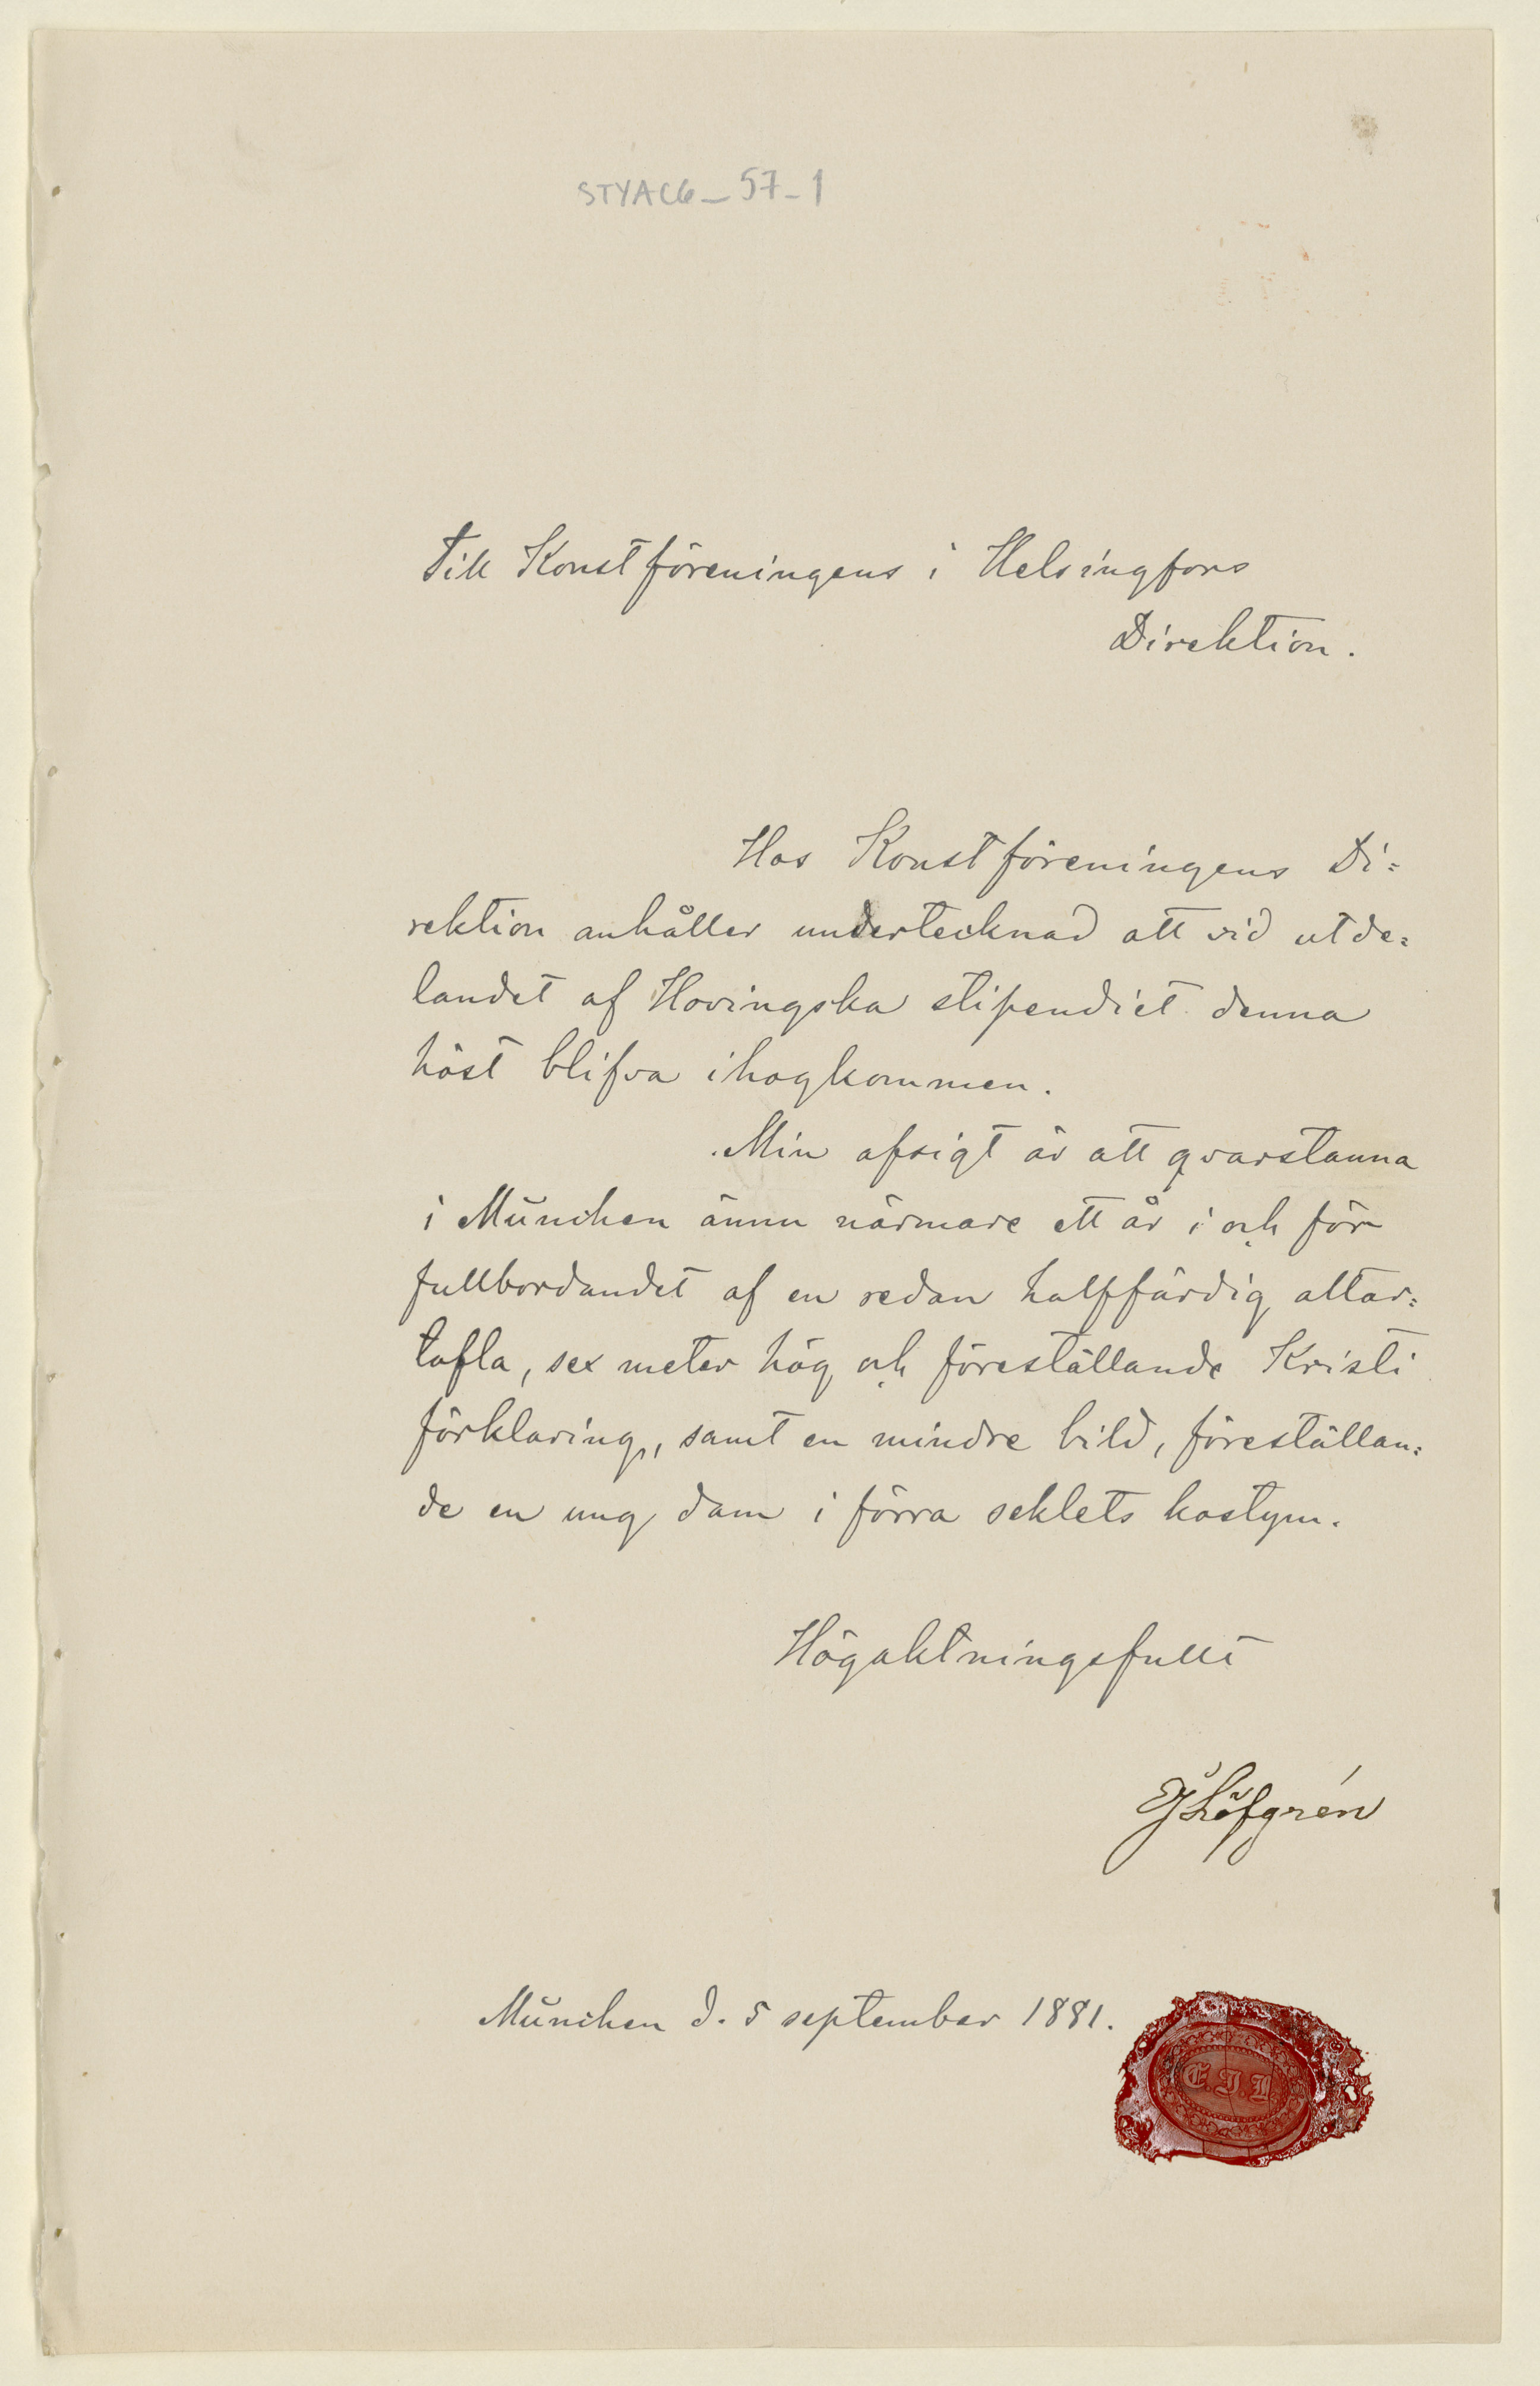 STYAC6_57_1
Till Konstföreningens i Helsingfors
Direktion.
Hos Konstföreningens Di=
rektion anhåller undertecknad att vid utde=
landet af Hovingska stipendiet denna
höst blifva ihogkommen.
Min afsigt är att qvarstanna
i München ännu närmare ett år i och för
fullbordandet af en redan halffärdig altar=
tafla, sex meter hög och föreställande Kristi
förklaring, samt en mindre bild, föreställan=
de en ung dam i förra seklets kostym.
Högaktningsfullt
EJLöfgrén
München d. 5 september 1881.
E.J.L.